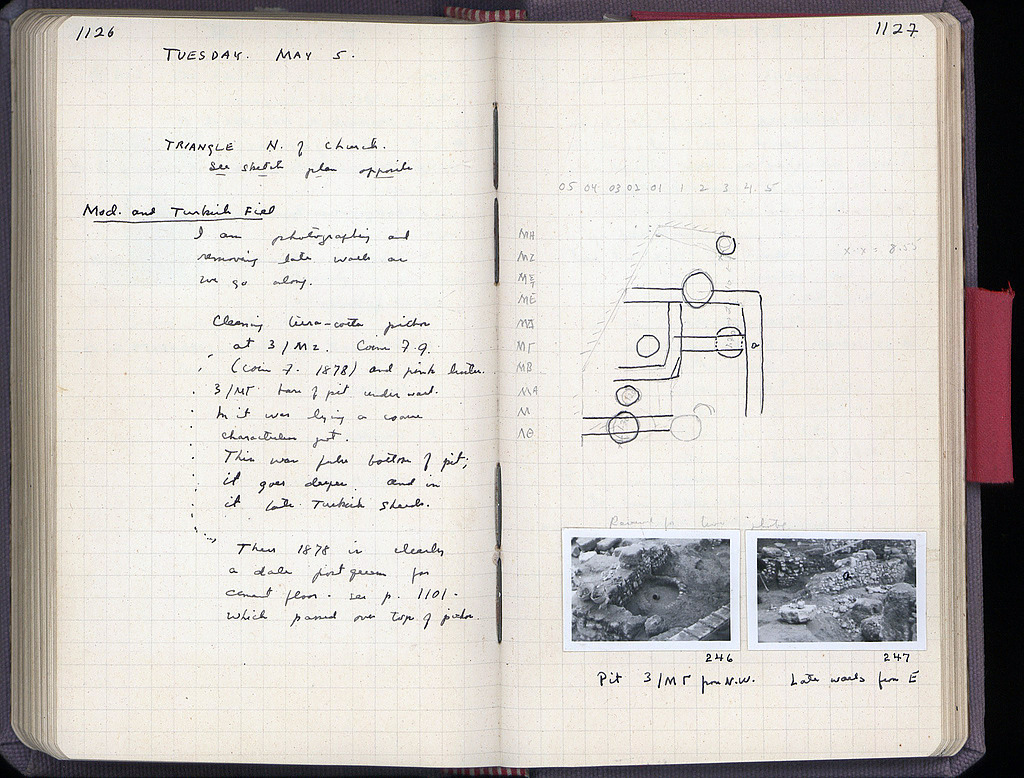 1126
TUESDAY. MAY 5.
TRIANGLE N. of Church.
See sketch plan opposite
Mod. and Turkish Fill
I am photographing and
removing late walls as
we go along.
Cleaning terra-cotta pithos
at 3/MZ. Coin 7.9.
(coin 7. 1878) and pink
3/MΓ. base of pit under wall.
In it was lying a coarse
characterless pot.
This was false bottom of pit;
it goes deeper and in
it late Turkish sherds.
Thus 1878 is clearly
a date post quem for
cement floor. see p. 1101.
which passed over top of pithos.
1127
05 04 03 02 01 1 2 3 4 5
MH
MZ
ME
MΔ
MΓ
MB
MA
M
ΛΘ
a
x.x = 8.55
a
246
247
Pit 3/MΓ from N.W.
Late walls from E